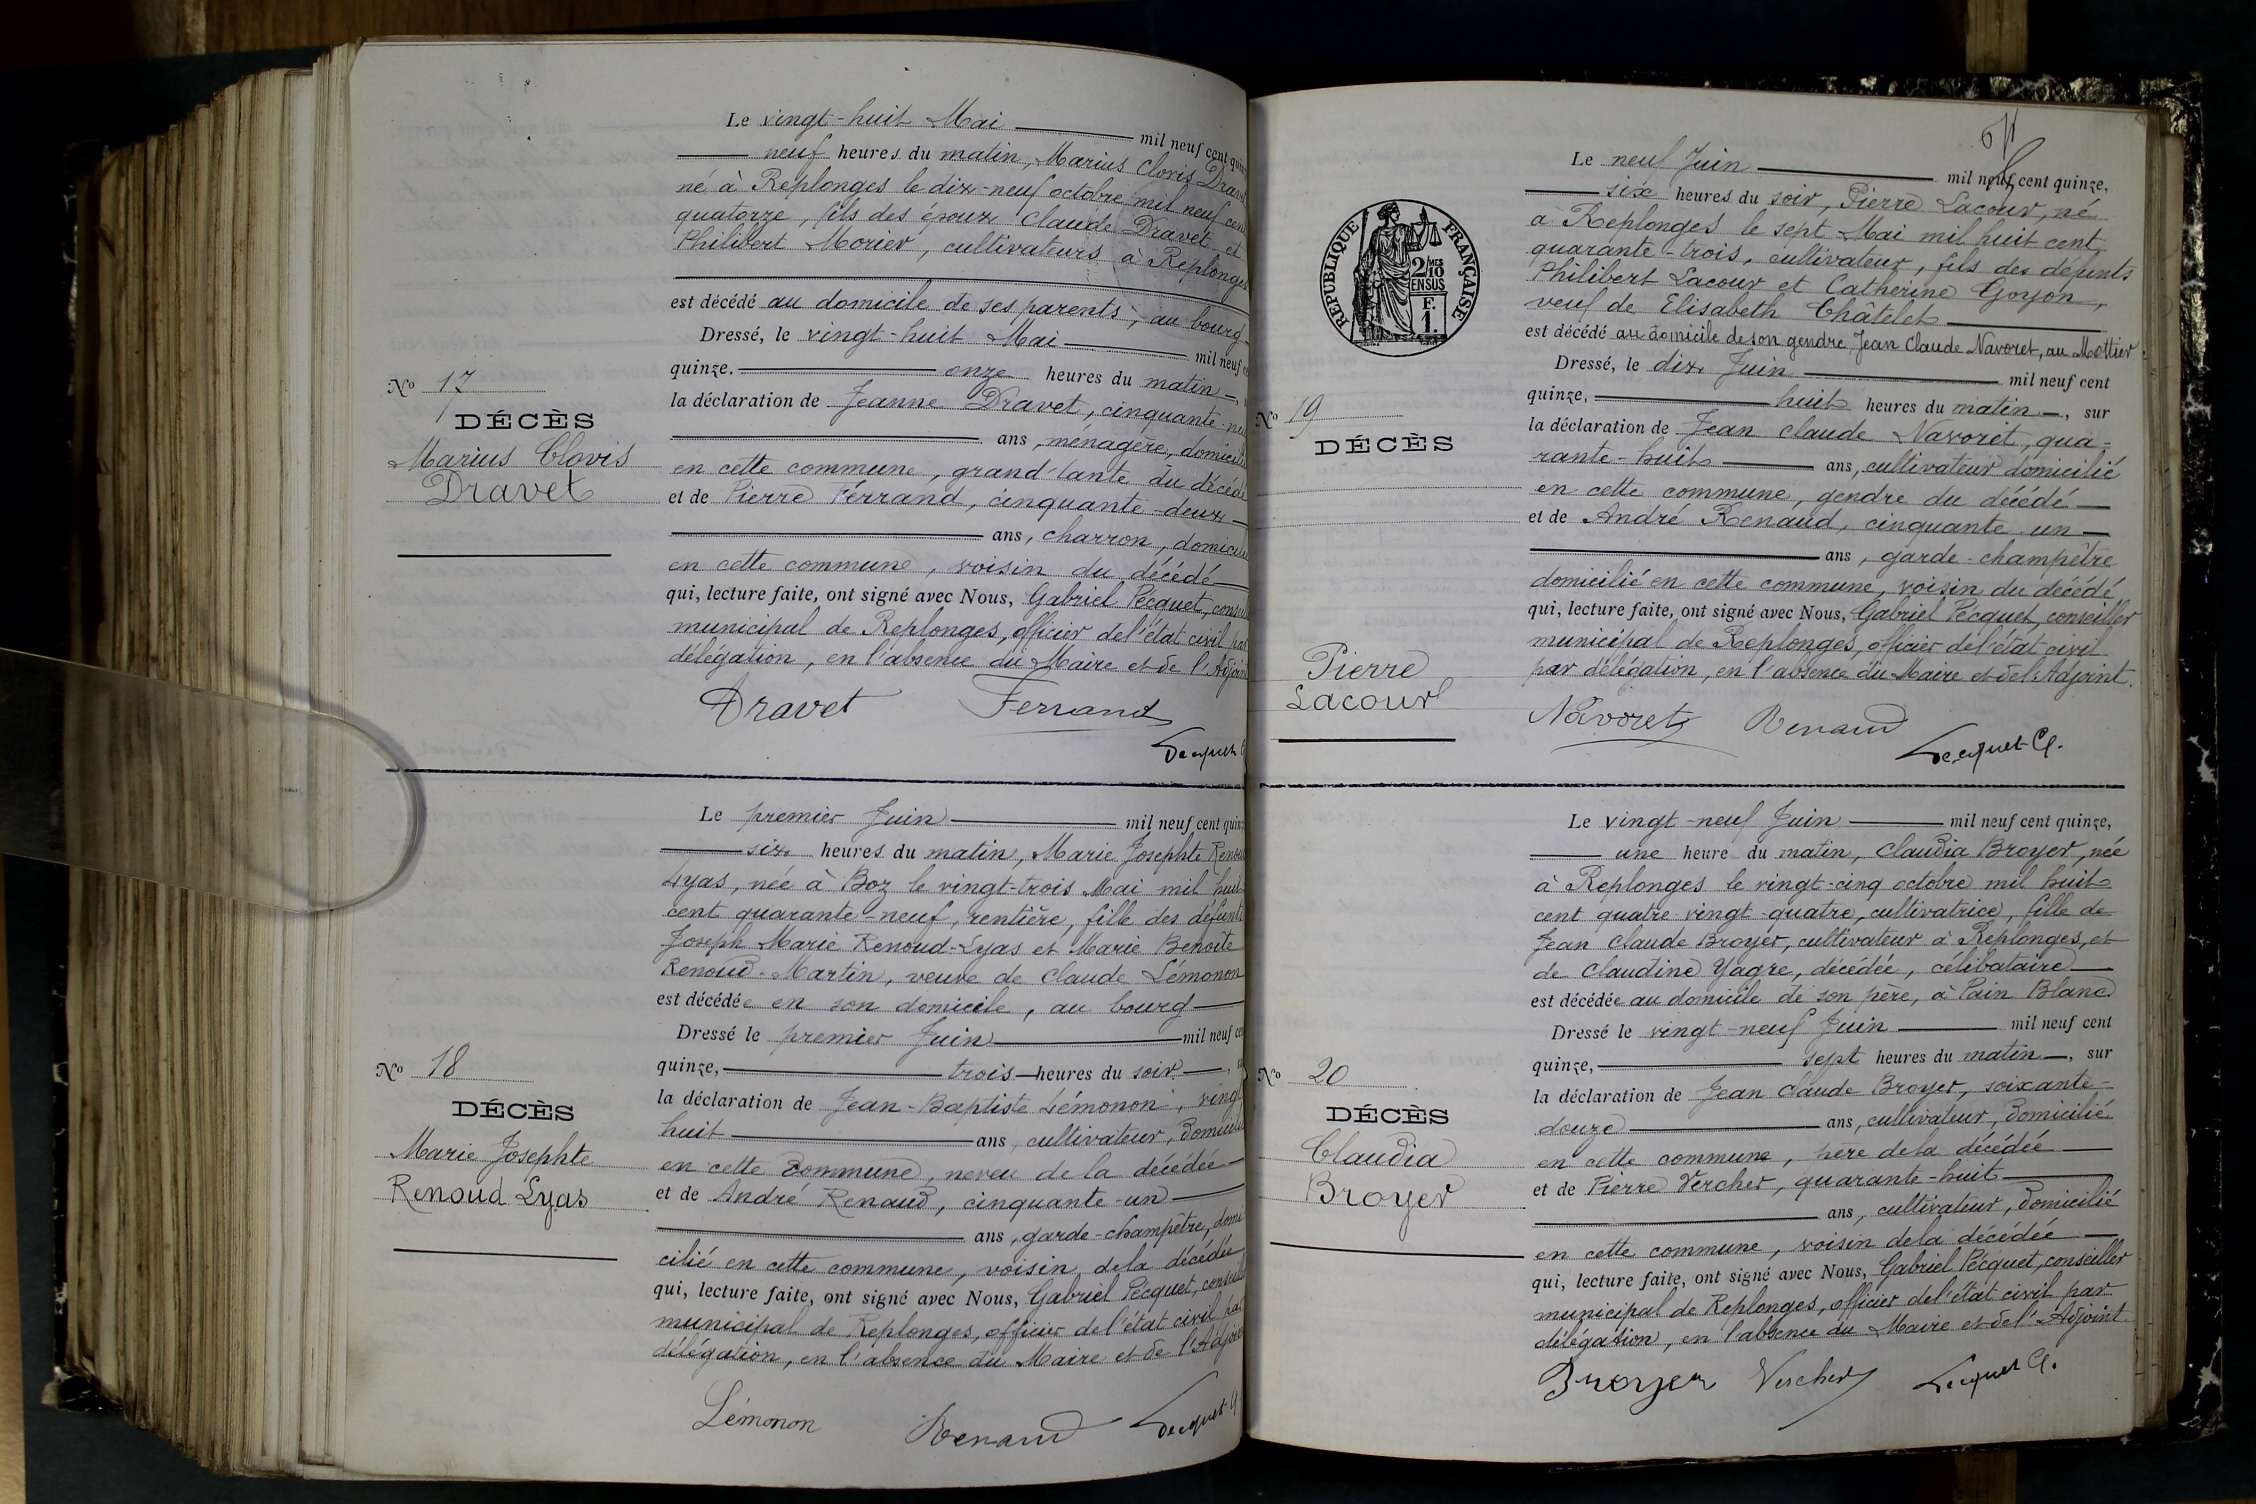 Le vingt-huit Mai mil neuf cent
neuf heures du matin, Marius Clovis
né à Replonges le dix-neuf octobre mil neuf cent
quatorze, fils des époux Claude Dravet et
Philibert Morier, cultivateurs à Replonges
est décédé au domicile de ses parents, au bourg
Dressé, le vingt-huit Mai mil neuf
quinze. onze heures du matin
Nº 17
la déclaration de Jeanne Dravet, cinquante
DÉCÈS
ans, ménagère,
Marius Clovis
en cette commune, grand'tante du décédé
Dravet
et de Pierre Ferrand, cinquante-deux
ans, charron,
en cette commune, voisin du décédé
qui, lecture faite, ont signé avec Nous, Gabriel Pécquet,
municipal de Replonges, officier de l'état civil par
délégation, en l'absence du Maire et de l'Adjoint
Dravet Ferrand
Pecquet
Le premier Juin mil neuf cent
six heures du matin, Marie Josephte
Lyas, née à Boz le vingt-trois Mai mil huit
cent quarante-neuf, rentière, fille des défunts
Joseph Marie Renoud-Lyas et Marie Benoite
Renoud-Martin, veuve de Claude Lémonon
est décédée en son domicile, au bourg
Dressé le premier Juin mil neuf
Nº 18
quinze, trois heures du soir
DÉCÈS
la déclaration de Jean-Baptiste Lémonon, vingt
huit ans, cultivateur,
Marie Josephte
en cette commune, neveu de la décédée
Renoud Lyas
et de André Renaud, cinquante-un
ans, garde-champêtre, domi
cilié en cette commune, voisin de la décédée
qui, lecture faite, ont signé avec Nous, Gabriel Pécquet,
municipal de Replonges, officier de l'état civil par
délégation, en l'absence du Maire et de l'Adjoint
Lémonon Renaud Pecquet
Le neuf Juin mil neuf cent quinze,
six heures du soir, Pierre Lacour, né
à Replonges le sept Mai mil huit cent
quarante-trois, cultivateur, fils des défunts
Philibert Lacour et Catherine Goyon,
veuf de Elisabeth Châtelet
RÉPUBLIQUE FRANÇAISE
2/10 MES
EN SUS
F.
1.
est décédé au domicile de son gendre, Jean Claude Navoret, au Mottier
Dressé, le dix Juin mil neuf cent
quinze, huit heures du matin, sur
Nº 19
la déclaration de Jean Claude Navoret, qua-
DÉCÈS
rante-huit ans, cultivateur domicilié
en cette commune, gendre du décédé
et de André Renaud, cinquante-un
ans, garde-champêtre
domicilié en cette commune, voisin du décédé
qui, lecture faite, ont signé avec Nous, Gabriel Pécquet, conseiller
municipal de Replonges, officier de l'état civil
Pierre
par délégation, en l'absence du Maire et de l'Adjoint.
Lacour
Navoret Renaud
Pecquet G.
Le vingt-neuf Juin mil neuf cent quinze,
une heure du matin, Claudia Broyer, née
à Replonges le vingt-cinq octobre mil huit
cent quatre-vingt-quatre, cultivatrice, fille de
Jean Claude Broyer, cultivateur à Replonges, et
de Claudine Yagre, décédée, célibataire
est décédée au domicile de son père, à Pain Blanc
Dressé le vingt-neuf Juin mil neuf cent
Nº 20
quinze, sept heures du matin, sur
la déclaration de Jean Claude Broyer, soixante-
DÉCÈS
douze ans, cultivateur, domicilié
Claudia
en cette commune, père de la décédée
Broyer
et de Pierre Vercher, quarante-huit
ans, cultivateur, domicilié
en cette commune, voisin de la décédée
qui, lecture faite, ont signé avec Nous, Gabriel Pécquet, conseiller
municipal de Replonges, officier de l'état civil par
délégation, en l'absence du Maire et de l'Adjoint
Broyer Vercher Pecquet G.